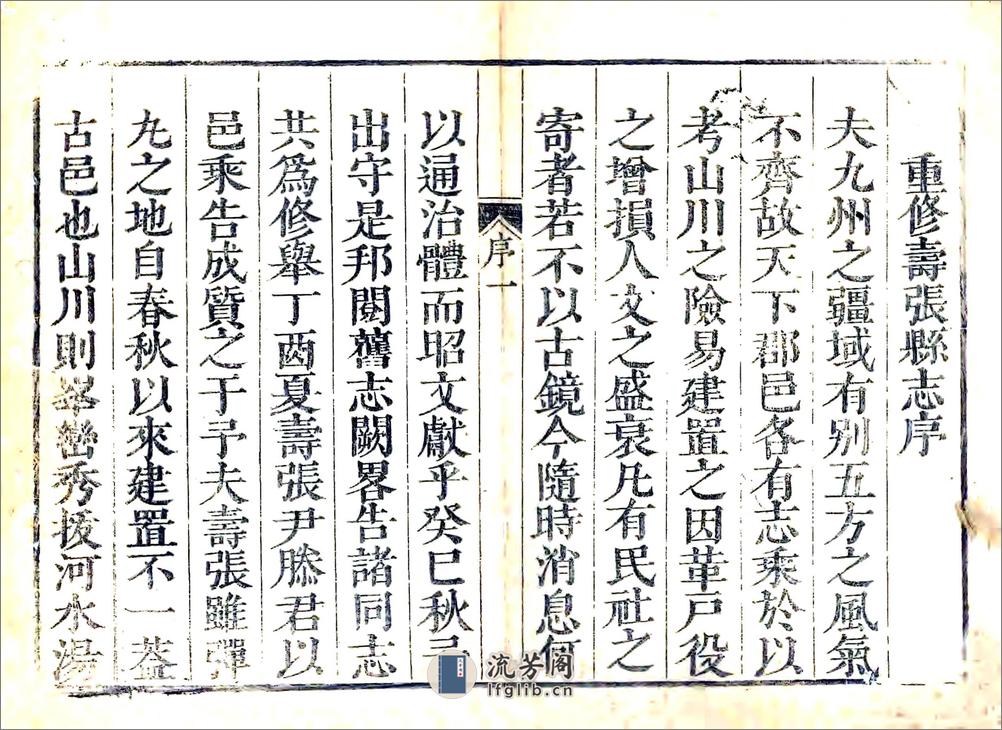 重修壽張縣志序
夫九州之疆域有别五方之風氣
不齊故天下郡邑各有志乘於以
考山川之險易建置之因革戸役
之增損人文之盛衰凡有民社之
寄者若不以古鏡今隨時消息何
序一
以通治體而昭文獻乎癸巳秋
出守是邦閱舊志闕畧告諸同志
共爲修舉丁酉夏壽張尹滕君以
邑乘告成質之于予夫壽張雖彈
丸之地自春秋以來建置不一葢
古邑也山川則峯巒秀拔河水湯
流芳阁
lfglib.cn